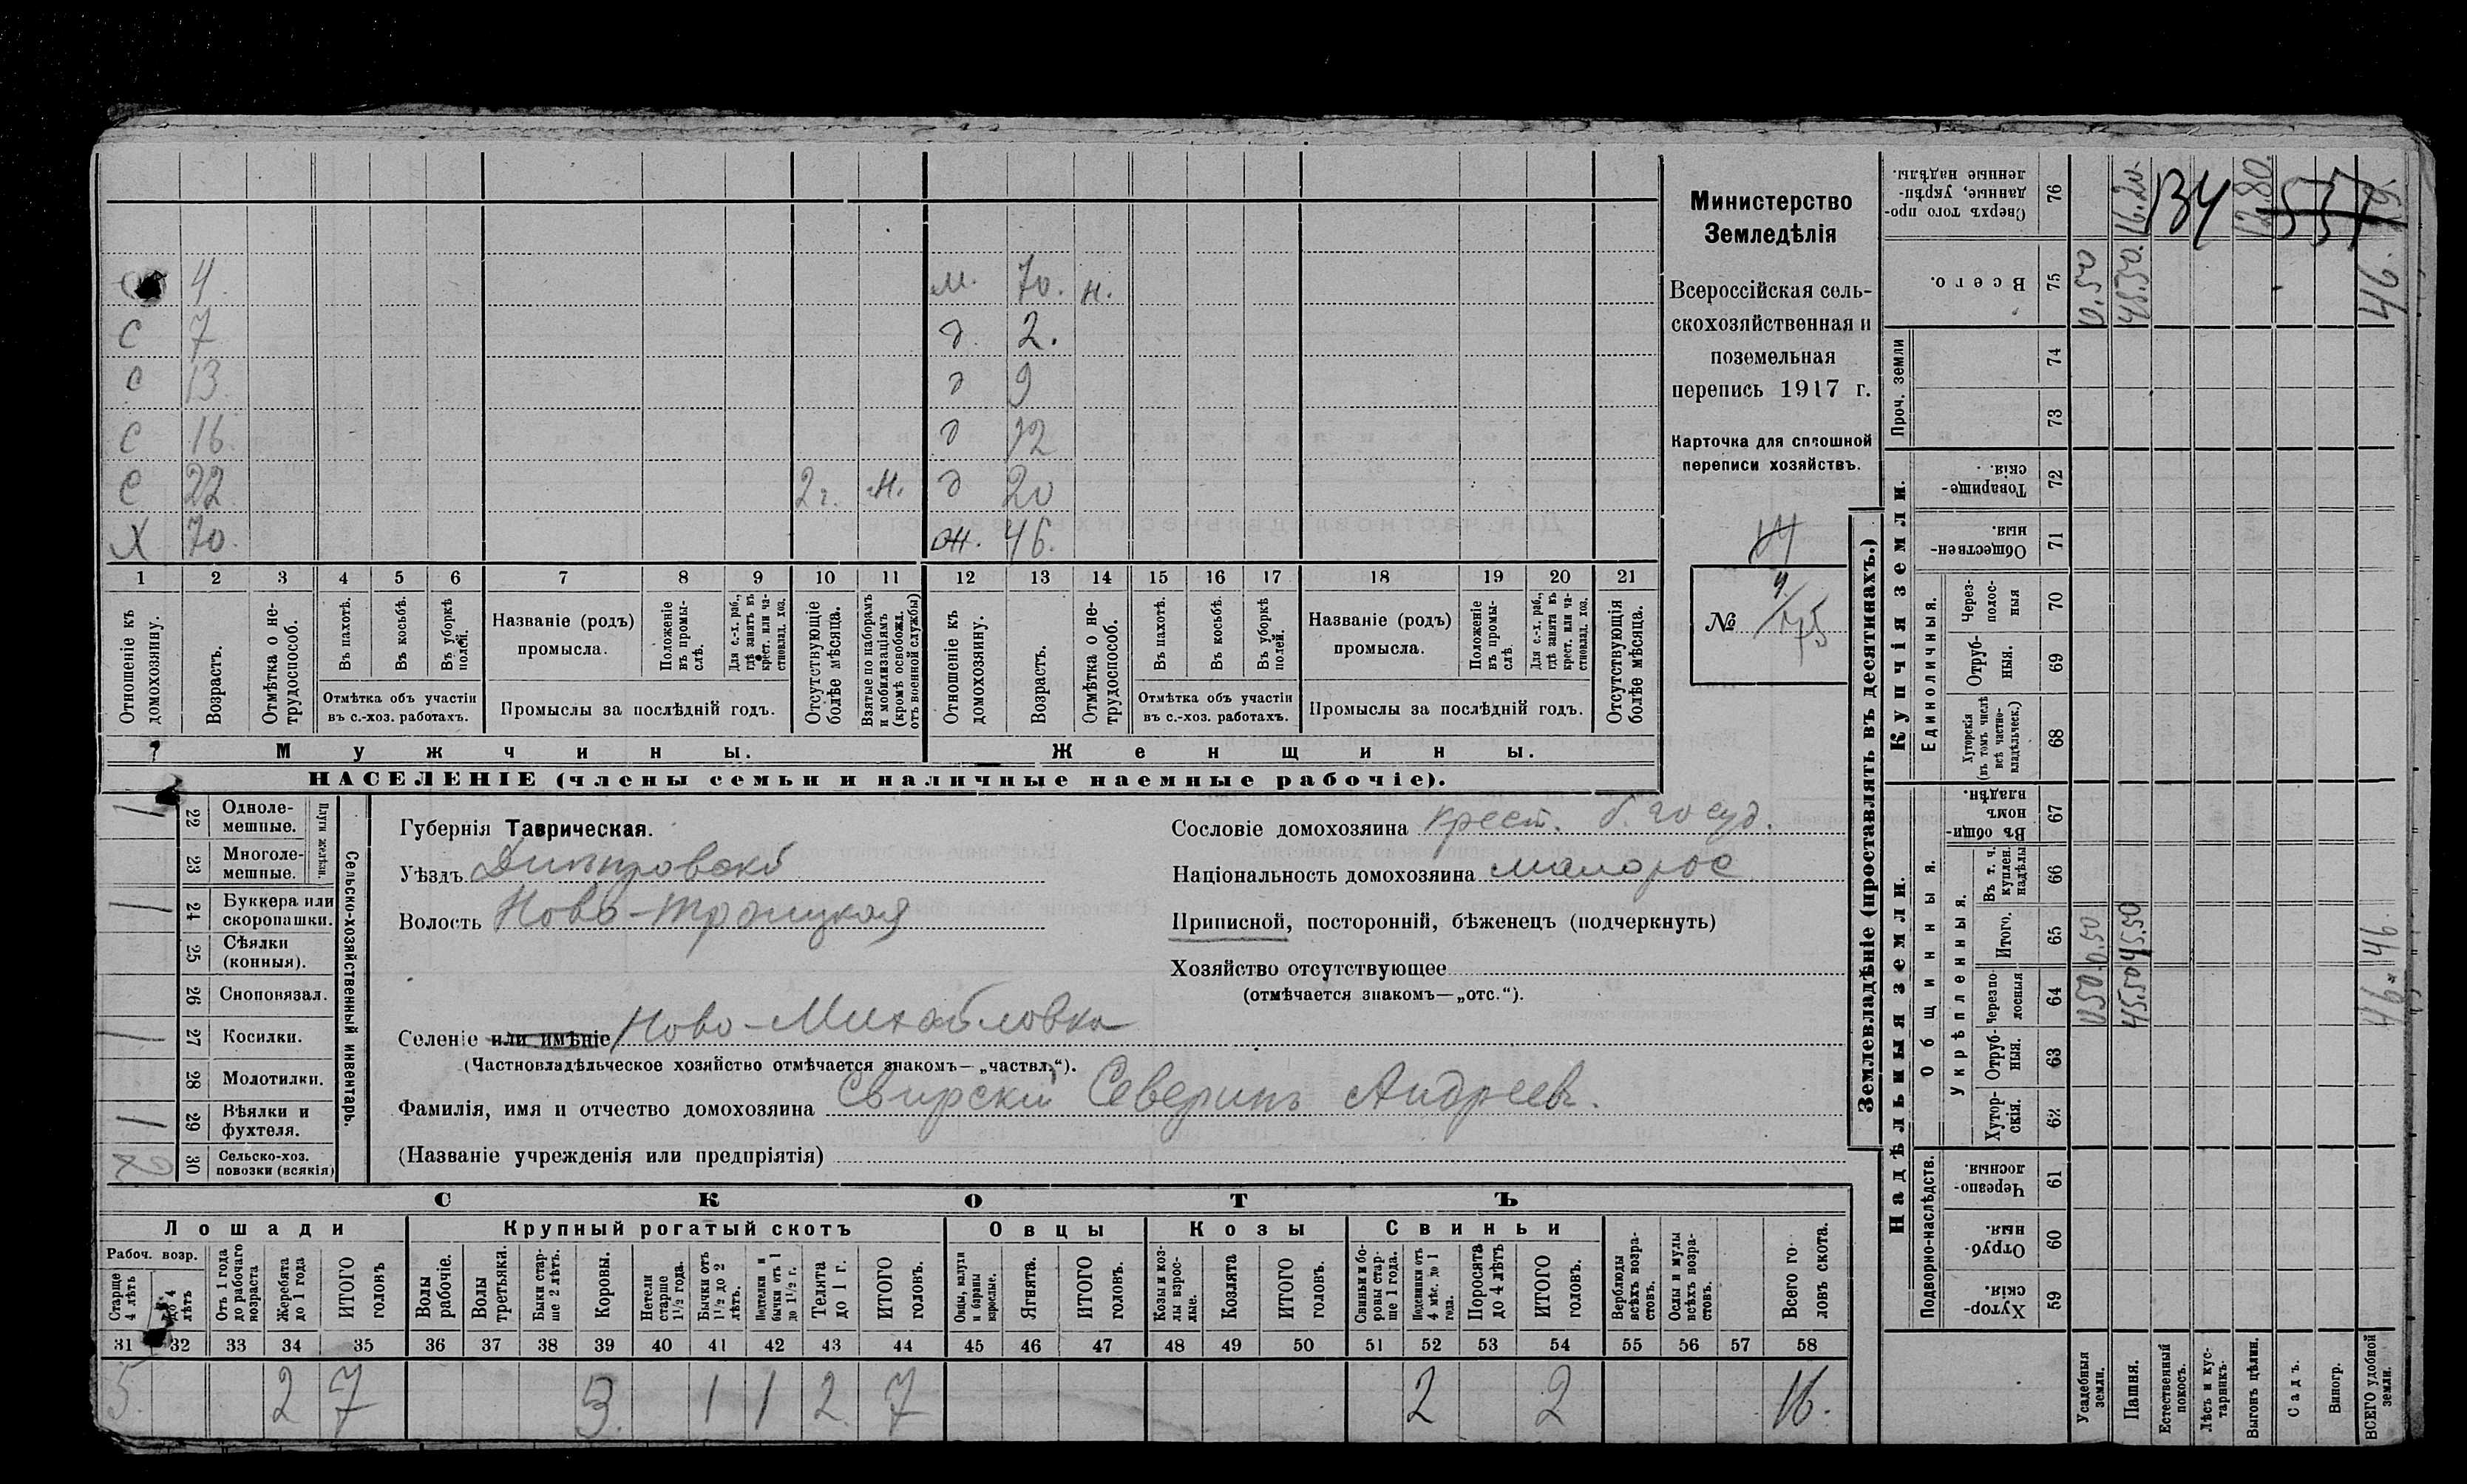 4 м. 70. н.
с 7 д. 2.
с 13. д 9
с 16. д 12
с 22 2 г. н. д 20
х 70. ж. 46.
1 2 3 4 5 6 7 8 9 10 11 12 13 14 15 16 17 18 19 20 21
Отношеніе къ домохозяину.
Возрастъ.
Отмѣтка о не-трудоспособ.
Въ пахотѣ.
Въ косьбѣ.
Въ уборкѣ полей.
Отмѣтка объ участіи
въ с.-хоз. работахъ.
Названіе (родъ)
промысла.
Положеніе въ промы-слѣ.
Для с.-х. раб., гдѣ занятъ въ крест. или ча-стновлад. хоз.
Промыслы за послѣдній годъ.
Отсутствующіе болѣе мѣсяца.
Взятые по наборамъ и мобилизаціямъ (кромѣ освобожд. отъ военной службы)
Отношеніе къ домохозяину.
Возрастъ.
Отмѣтка о не-трудоспособ.
Въ пахотѣ.
Въ косьбѣ.
Въ уборкѣ полей.
Отмѣтка объ участіи
въ с.-хоз. работахъ.
Названіе (родъ)
промысла.
Положеніе въ промы-слѣ.
Для с.-х. раб., гдѣ занята въ крест. или ча-стновлад. хоз.
Промыслы за послѣдній годъ.
Отсутствующія болѣе мѣсяца.
Мужчины. Женщины.
НАСЕЛЕНІЕ (члены семьи и наличные наемные рабочіе).
Министерство
Земледѣлія
Всероссійская сель-
скохозяйственная и
поземельная
перепись 1917 г.
Карточка для сплошной
переписи хозяйствъ.
№ 175
Сельско-хозяйственный инвентарь.
Плуги желѣзн.
1 22 Одноле-мешные.
23 Многоле-мешные.
1 24 Буккера или скоропашки.
25 Сѣялки (конныя).
26 Сноповязал.
1 27 Косилки.
28 Молотилки.
1 29 Вѣялки и фухтеля.
2 30 Сельско-хоз. повозки (всякія)
Губернія Таврическая.
Уѣздъ Днѣпровскій
Волость Ново-Троицкая
Сословіе домохозяина крест. б. госуд.
Національность домохозяина малорос
Приписной, посторонній, бѣженецъ (подчеркнуть)
Хозяйство отсутствующее
(отмѣчается знакомъ—„отс.“).
Селеніе или имѣніе Ново-Михайловка
(Частновладѣльческое хозяйство отмѣчается знакомъ—„частвл.“).
Фамилія, имя и отчество домохозяина Свирскій Северинъ Андреев.
(Названіе учрежденія или предпріятія)
СКОТЪ
Лошади Крупный рогатый скотъ Овцы Козы Свиньи
Рабоч. возр.
Старше 4 лѣтъ
до 4 лѣтъ
Отъ 1 года до рабочаго возраста
Жеребята до 1 года
ИТОГО головъ
Волы рабочіе.
Волы третьяки.
Быки стар-ше 2 лѣтъ.
Коровы.
Нетели старше 1½ года.
Бычки отъ 1½ до 2 лѣтъ.
Подтелки и бычки отъ 1 до 1½ г.
Телята до 1 г.
ИТОГО головъ.
Овцы, валухи и бараны взрослые.
Ягнята.
ИТОГО головъ.
Козы и коз-лы взрос-лые.
Козлята
ИТОГО головъ.
Свиньи и бо-ровы стар-ше 1 года.
Подсвинки отъ 4 мѣс. до 1 года.
Поросята до 4 лѣтъ
ИТОГО головъ.
Верблюды всѣхъ возра-стовъ.
Ослы и мулы всѣхъ возра-стовъ.
Всего го-ловъ скота.
31 32 33 34 35 36 37 38 39 40 41 42 43 44 45 46 47 48 49 50 51 52 53 54 55 56 57 58
5. 2 7 3. 1 1 2. 7 2 2 16.
Землевладѣніе (проставлять въ десятинахъ.)
Купчія земли.
Надѣльныя земли.
Сверхъ того про-данные, укрѣп-ленные надѣлы. 76 16.20. 134 12.80.
Всего. 75 0.50 45.50. 46.
Проч. земли 74
73
Товарище-скія. 72
Обществен-ныя. 71
Единоличныя.
Через-полос-ныя 70
Отруб-ныя. 69
Хуторскія (въ томъ числѣ всѣ частно-владѣльческ.) 68
Общинныя.
Въ общин-номъ владѣн. 67
Укрѣпленныя.
Въ т. ч. куплен. надѣлы 66
Итого. 65 0.50 45.50 46.
черезпо-лосныя 64 0.50. 45.50 46
Отруб-ныя. 63
Хутор-скія. 62
Подворно-наслѣдств.
Черезпо-лосныя. 61
Отруб-ныя. 60
Хутор-скія. 59
Усадебныя земли.
Пашня.
Естественный покосъ.
Лѣсъ и кус-тарникъ.
Выгонъ цѣлин.
Садъ.
Виногр.
ВСЕГО удобной земли.